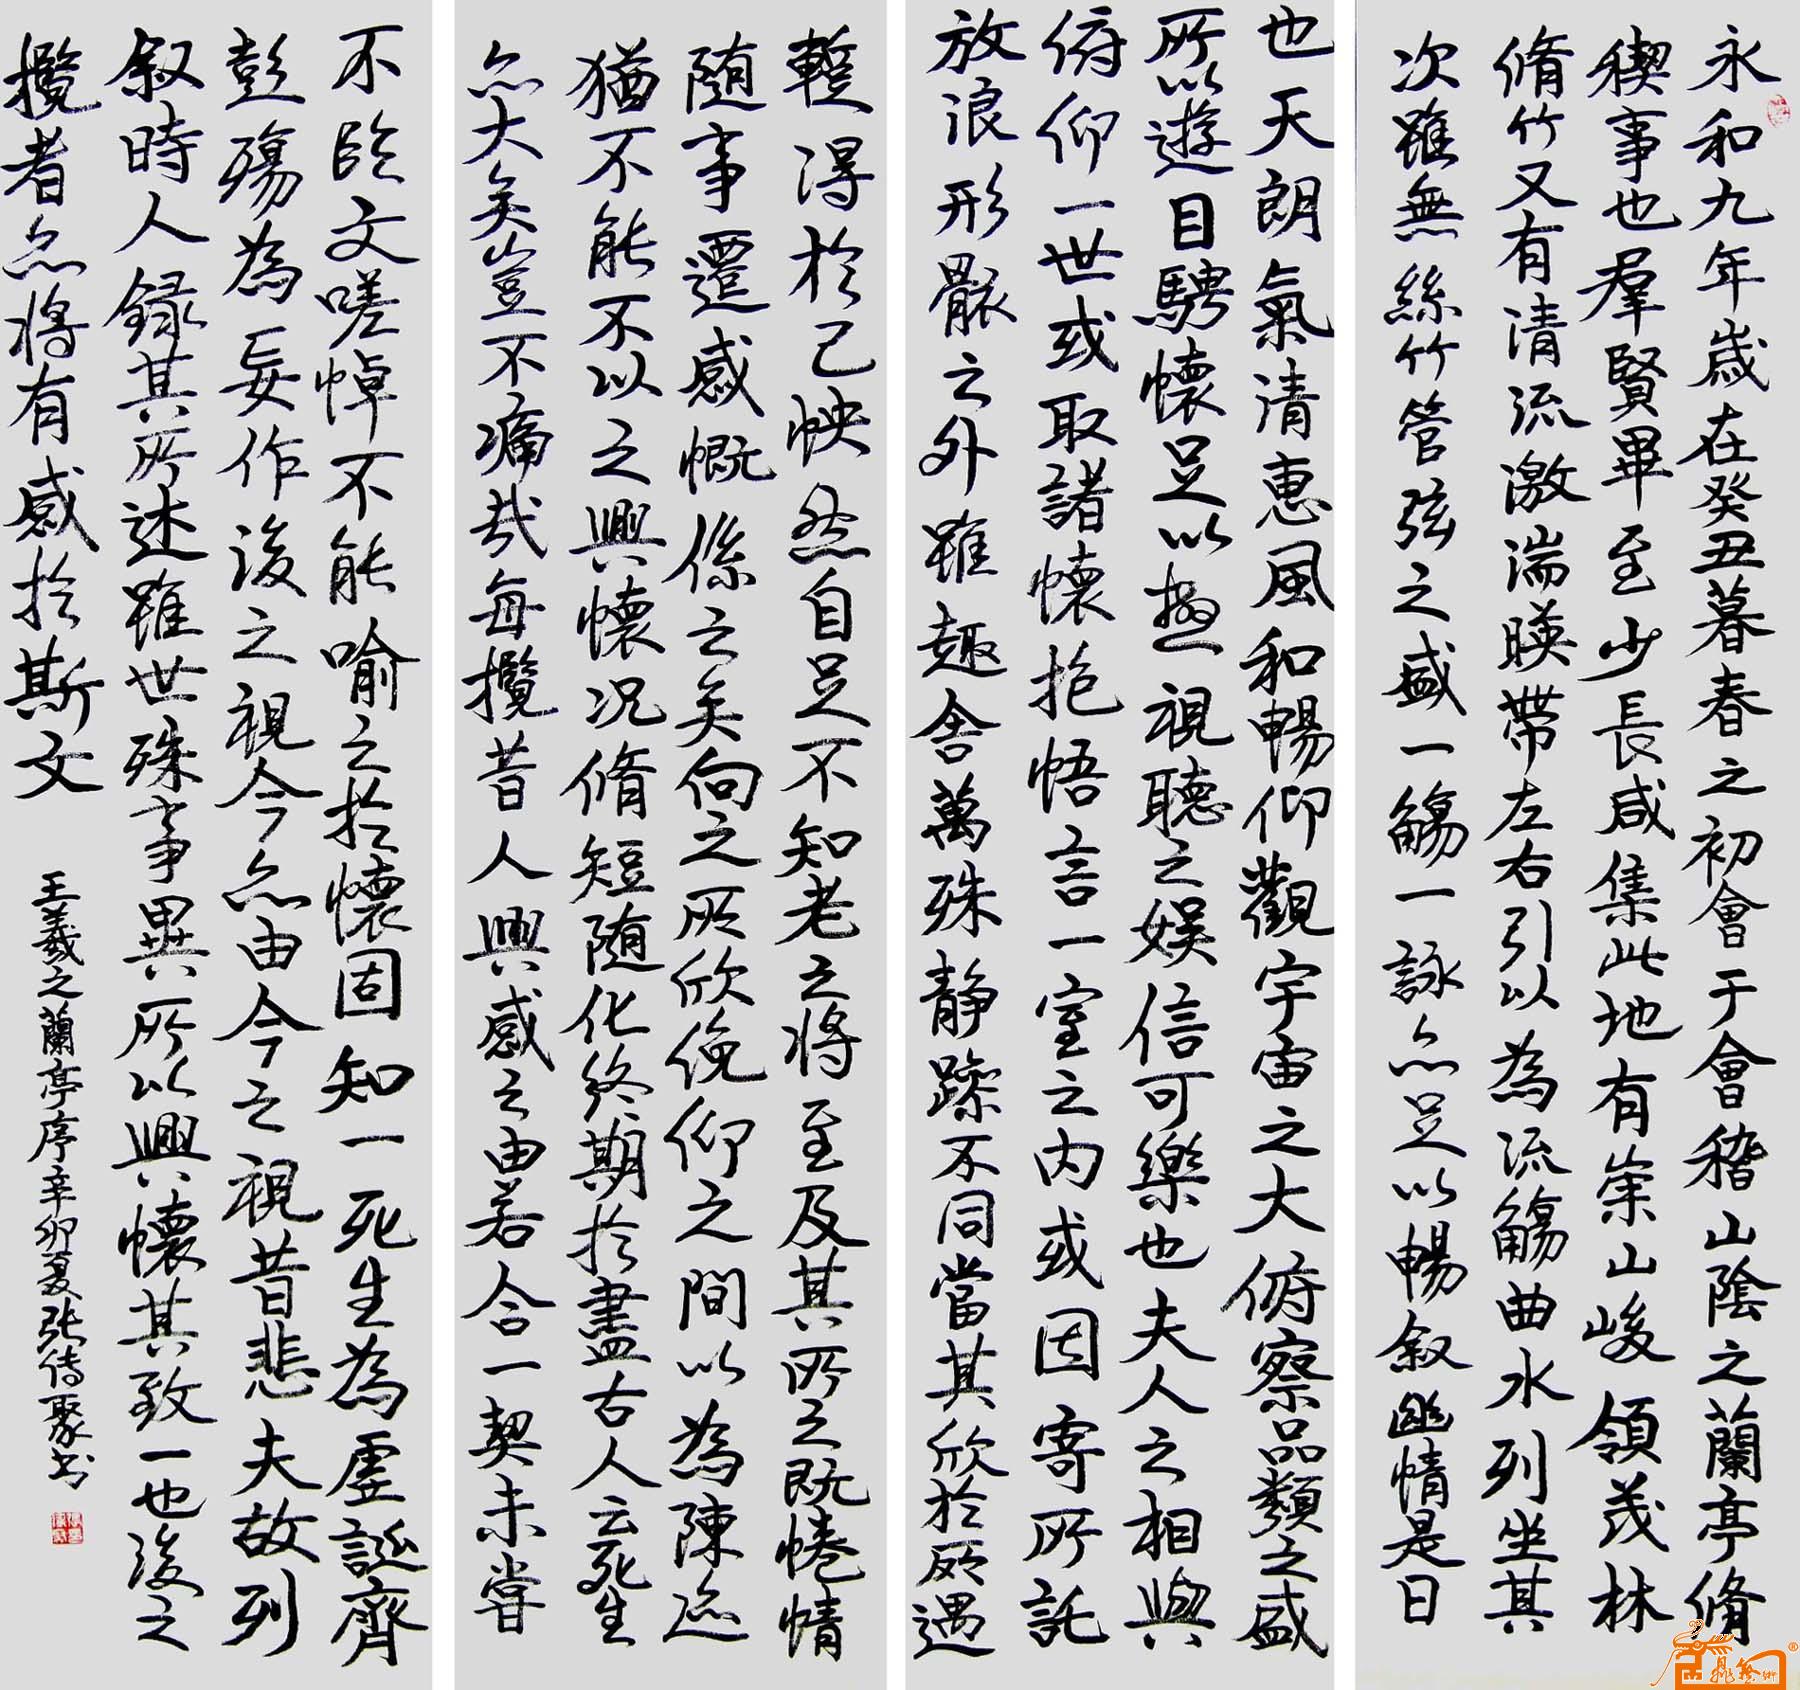 永和九年歲在癸丑暮春之初會于會稽山陰之蘭亭脩
稧事也羣賢畢至少長咸集此地有崇山峻領茂林
脩竹又有清流激湍暎帶左右引以為流觴曲水列坐其
次雖無絲竹管弦之盛一觴一詠亦足以暢叙幽情是日
也天朗氣清惠風和暢仰觀宇宙之大俯察品類之盛
所以遊目騁懷足以極視聽之娛信可樂也夫人之相與
俯仰一世或取諸懷抱悟言一室之内或因寄所託
放浪形骸之外雖趣舍萬殊静躁不同當其欣於所遇
蹔得於己怏然自足不知老之将至及其所之既惓情
随事遷感慨係之矣向之所欣俛仰之間以為陳迹
猶不能不以之興懷况脩短随化終期於盡古人云死生
亦大矣豈不痛哉每攬昔人興感之由若合一契未嘗
不臨文嗟悼不能喻之於懷固知一死生為虛誕齊
彭殤為妄作後之視今亦由今之視昔悲夫故列
叙時人録其所述雖世殊事異所以興懷其致一也後之
攬者亦将有感於斯文
王羲之蘭亭序辛卯夏张传聚书